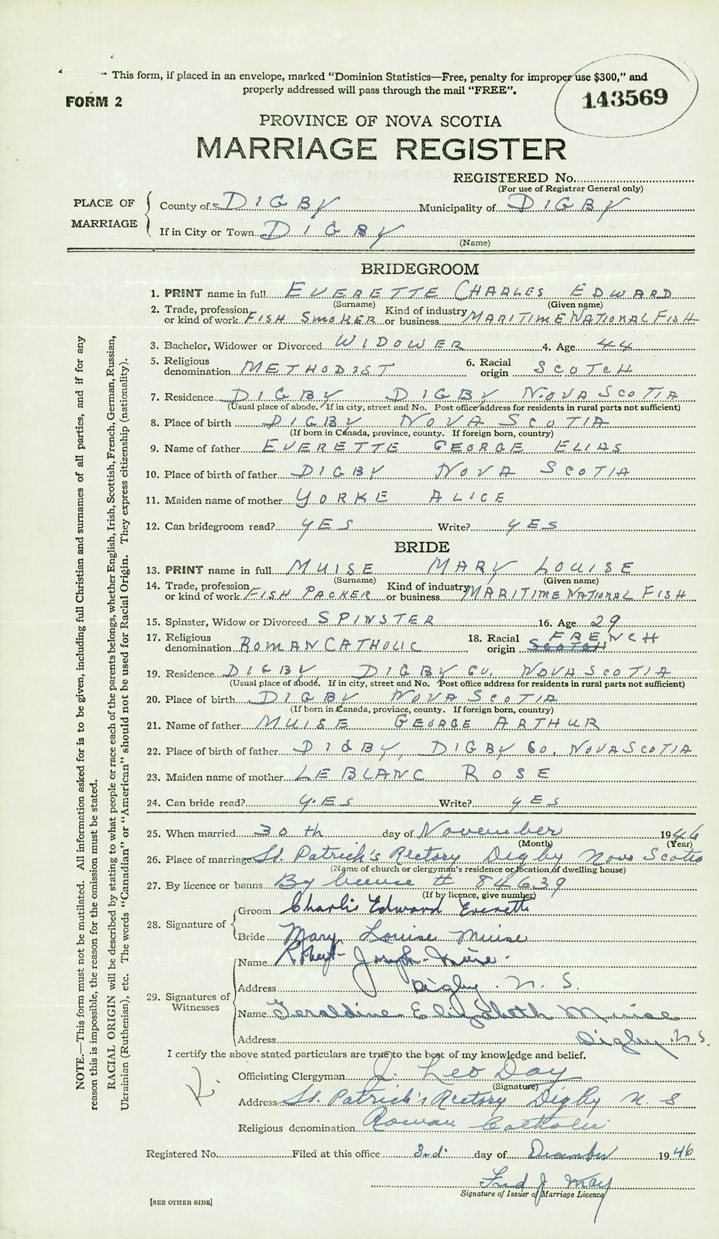 This form, if placed in an envelope, marked "Dominion Statistics—Free, penalty for improper use $300," and
properly addressed will pass through the mail "FREE".
FORM 2
143569
PROVINCE OF NOVA SCOTIA
MARRIAGE REGISTER
REGISTERED No.
(For use of Registrar General only)
PLACE OF MARRIAGE
County of DIGBY Municipality of DIGBY
If in City or Town DIGBY
(Name)
BRIDEGROOM
1. PRINT name in full EVERETTE CHARLES EDWARD
(Surname) (Given name)
2. Trade, profession or kind of work FISH SMOKER Kind of industry or business MARITIME NATIONAL FISH
3. Bachelor, Widower or Divorced WIDOWER 4. Age 44
5. Religious denomination METHODIST 6. Racial origin SCOTCH
7. Residence DIGBY DIGBY NOVA SCOTIA
(Usual place of abode. If in city, street and No. Post office address for residents in rural parts not sufficient)
8. Place of birth DIGBY NOVA SCOTIA
(If born in Canada, province, county. If foreign born, country)
9. Name of father EVERETTE GEORGE ELIAS
10. Place of birth of father DIGBY NOVA SCOTIA
11. Maiden name of mother YORKE ALICE
12. Can bridegroom read? YES Write? YES
BRIDE
13. PRINT name in full MUISE MARY LOUISE
(Surname) (Given name)
14. Trade, profession or kind of work FISH PACKER Kind of industry or business MARITIME NATIONAL FISH
15. Spinster, Widow or Divorced SPINSTER 16. Age 29
17. Religious denomination ROMAN CATHOLIC 18. Racial origin SCOTCH FRENCH
19. Residence DIGBY DIGBY CO. NOVA SCOTIA
(Usual place of abode. If in city, street and No. Post office address for residents in rural parts not sufficient)
20. Place of birth DIGBY NOVA SCOTIA
(If born in Canada, province, county. If foreign born, country)
21. Name of father MUISE GEORGE ARTHUR
22. Place of birth of father DIGBY, DIGBY CO. NOVA SCOTIA
23. Maiden name of mother LE BLANC ROSE
24. Can bride read? YES Write? YES
25. When married 30th day of November 1946
(Month) (Year)
26. Place of marriage St. Patrick's Rectory Digby Nova Scotia
(Name of church or clergyman's residence or location of dwelling house)
27. By licence or banns By licence # 84639
(If by licence, give number)
28. Signature of
Groom Charlie Edward Everette
Bride Mary Louise Muise
29. Signatures of Witnesses
Name Robert Joseph
Address Digby. N. S.
Name Geraldine Elizabeth Muise
Address Digby N.S.
I certify the above stated particulars are true to the best of my knowledge and belief.
Officiating Clergyman J. Leo Day
(Signature)
Address St. Patrick's Rectory Digby N. S
Religious denomination Roman Catholic
Registered No. Filed at this office 3rd. day of December 1946
Fred J May
Signature of Issuer of Marriage Licence
[SEE OTHER SIDE]
NOTE.—This form must not be mutilated. All information asked for is to be given, including full Christian and surnames of all parties, and if for any
reason this is impossible, the reason for the omission must be stated.
RACIAL ORIGIN will be described by stating to what people or race each of the parents belongs, whether English, Irish, Scottish, French, German, Russian,
Ukrainian (Ruthenian), etc. The words "Canadian" or "American" should not be used for Racial Origin. They express citizenship (nationality).